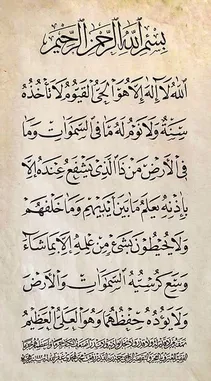 بِسْمِ اللهِ الرَّحْمٰنِ الرَّحِيْمِ
اَللهُ لَا اِلٰهَ اِلَّا هُوَ الْحَىُّ الْقَيُّوْمُ لَا تَأْخُذُهُ
سِنَةٌ وَلَا نَوْمٌ لَهُ مَا فِى السَّمٰوَاتِ وَمَا
فِى الْاَرْضِ مَنْ ذَا الَّذِى يَشْفَعُ عِنْدَهُ اِلَّا
بِاِذْنِهِ يَعْلَمُ مَا بَيْنَ اَيْدِيْهِمْ وَمَا خَلْفَهُمْ
وَلَا يُحِيْطُوْنَ بِشَىْءٍ مِنْ عِلْمِهِ اِلَّا بِمَا شَاءَ
وَسِعَ كُرْسِيُّهُ السَّمٰوَاتِ وَالْاَرْضَ
وَلَا يَؤُدُهُ حِفْظُهُمَا وَهُوَ الْعَلِىُّ الْعَظِيْمُ